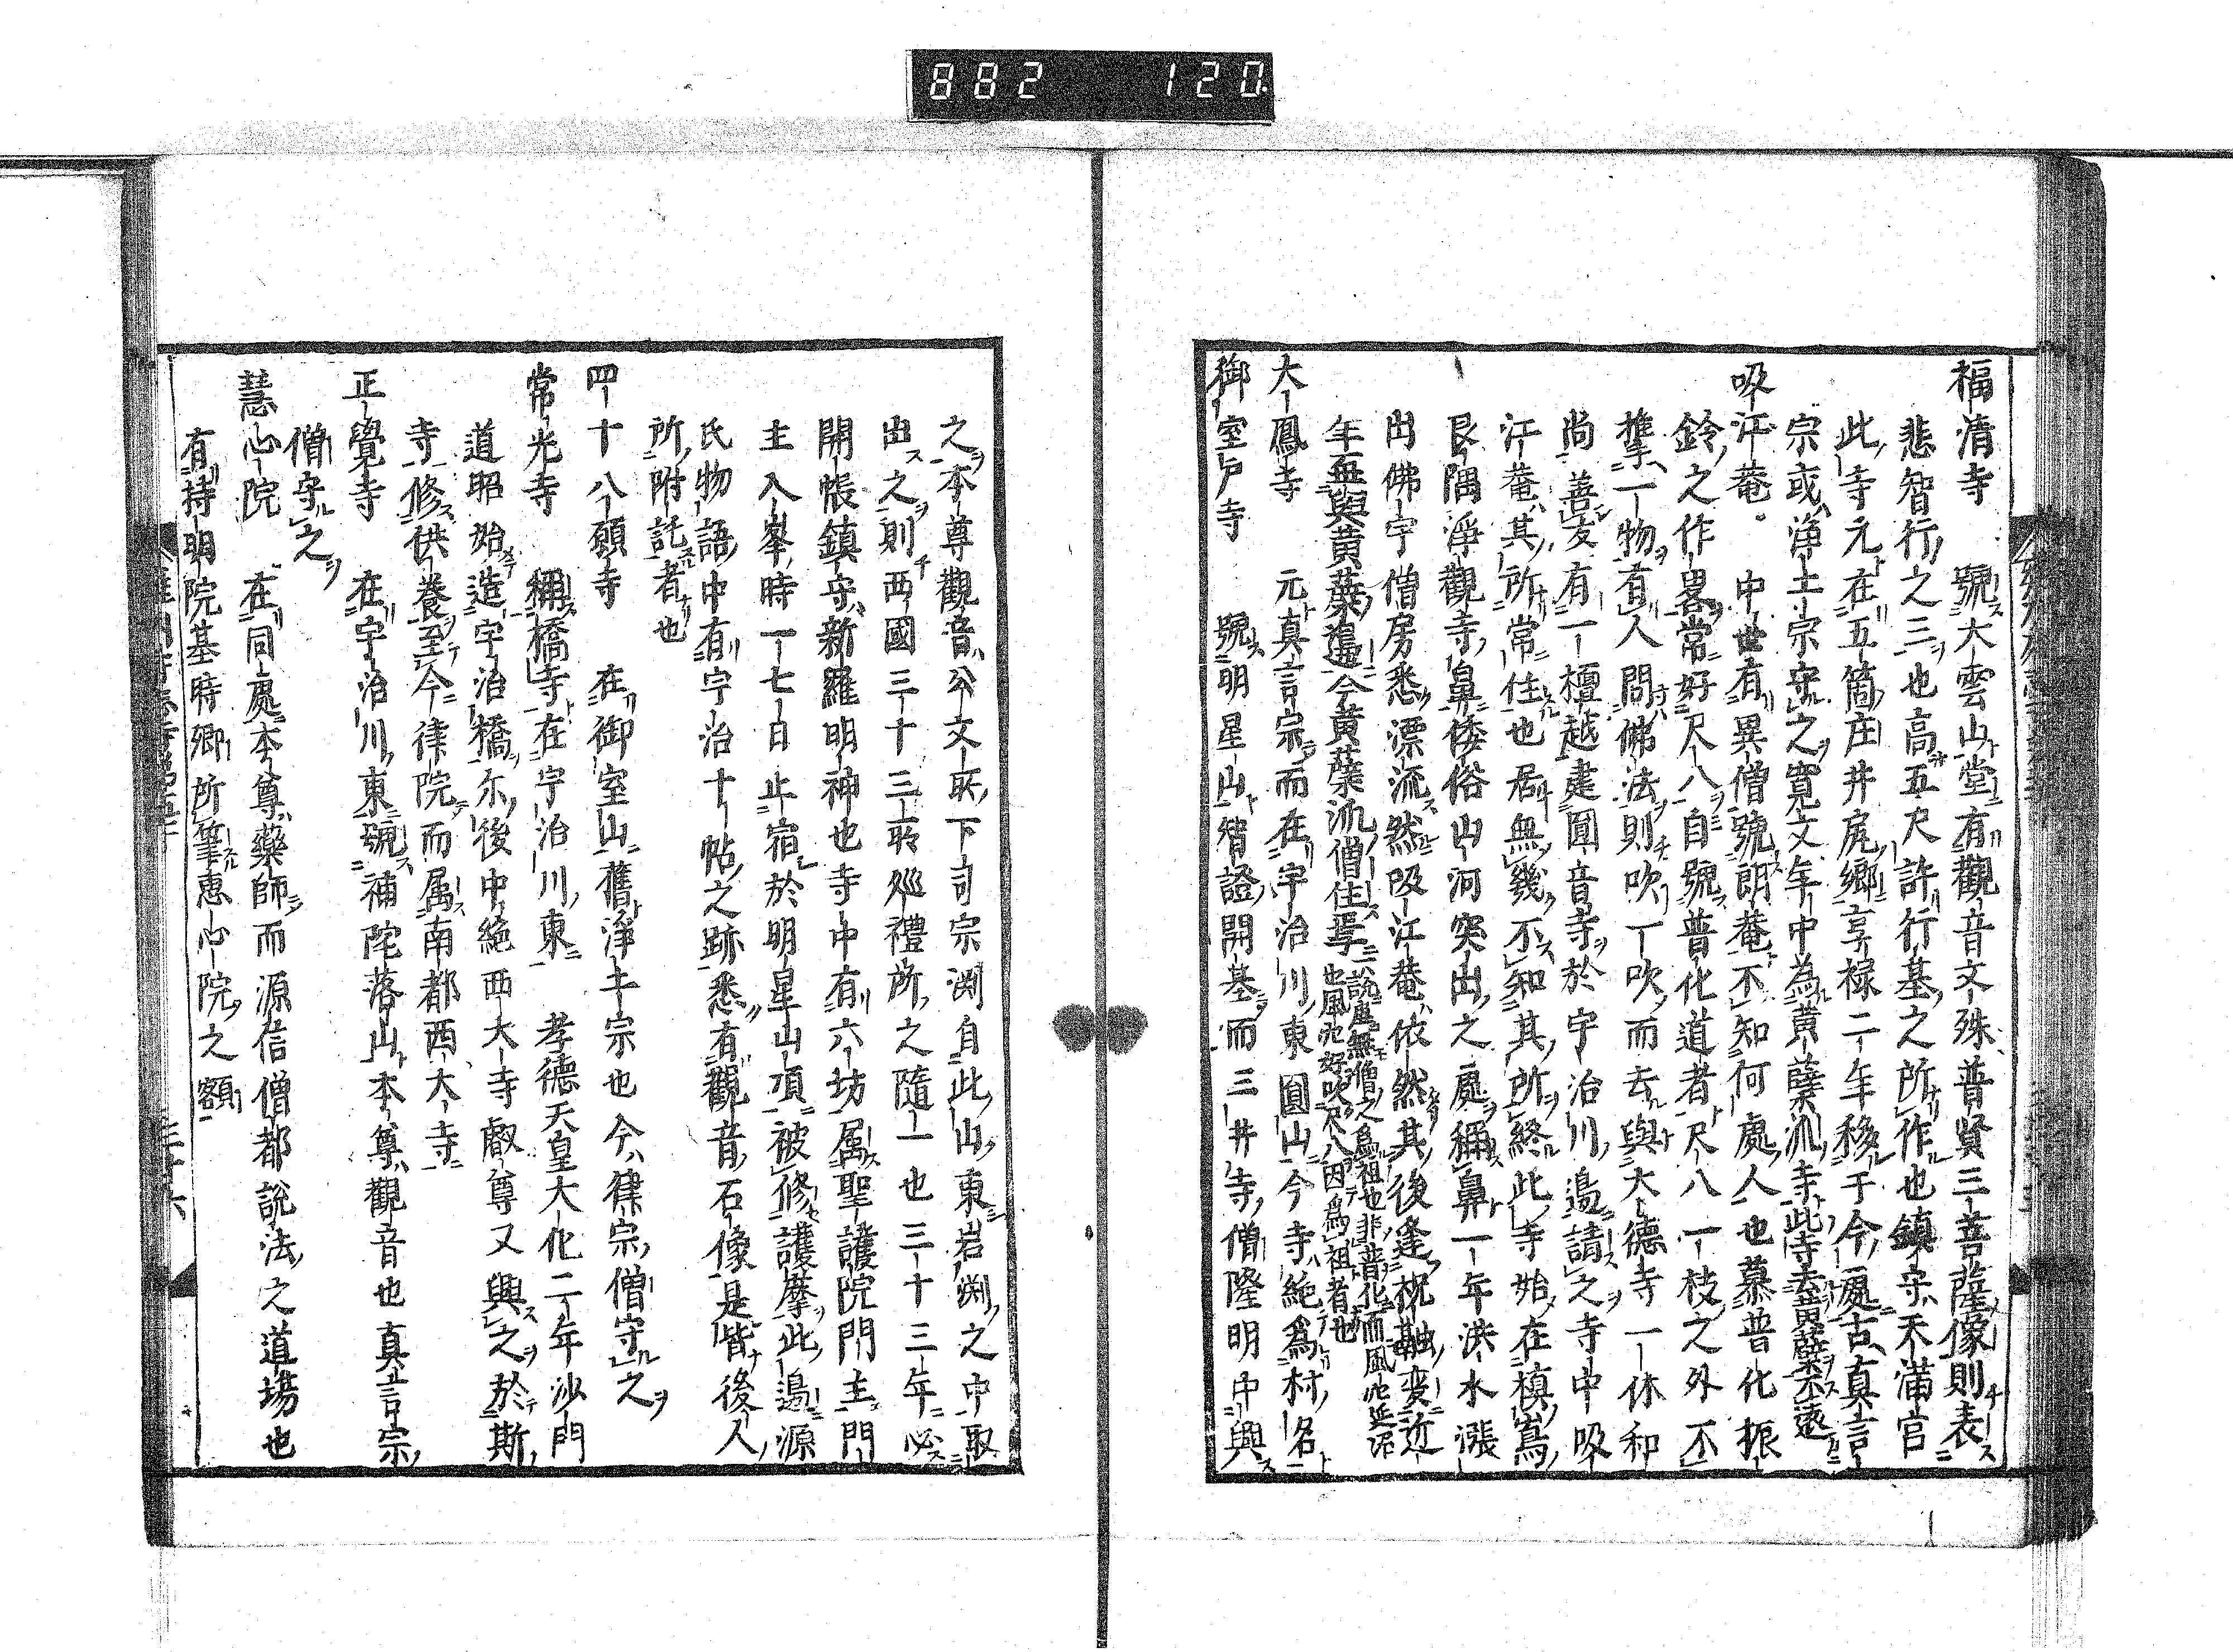 882 120
福清寺 號大雲山堂有觀音文殊普賢三菩薩像則表
悲智行之三也高五尺許行基之所作也鎮守天滿宮
此寺元在五箇庄井尻鄉享祿二年移于今處古真言
宗或淨土宗守之寬文年中為黃蘗派寺此寺去黃蘗不遠
吸江菴 中世有異僧號朗菴不知何處人也慕普化振
鈴之作畧常好尺八自號普化道者尺八一枝之外不
携一物有人問佛法則吹一吹而去與大德寺一休和
尚善友有一檀越建圓音寺於宇治川邊請之寺中吸
江菴其所常住也居無幾不知其所終此寺始在槙嶌
艮隅淨觀寺鼻倭俗山河突出之處稱鼻一年洪水漲
出佛宇僧房悉漂流然吸江菴依然其後逢祝融變近
年再興黃蘗進今黃蘗派僧住焉一說虛無僧之爲祖也非普化而風穴延沼
也風穴好吹尺八因爲祖者也
大鳳寺 元真言宗而在宇治川東圓山今寺絶爲村名
御室戶寺 號明星山智證開基而三井寺僧隆明中興
之本尊觀音公文所下司宗渕自此山東岩渕之中取
出之則西國三十三所巡禮所之隨一也三十三年必
開帳鎮守新羅明神也寺中有六坊属聖護院門主門
主入峯時一七日止宿於明星山頂被修護摩此邊源
氏物語中有宇治十帖之跡悉有觀音石像是皆後人
所附託者也
四十八願寺 在御室山舊淨土宗也今律宗僧守之
常光寺 稱橋寺在宇治川東 孝德天皇大化二年沙門
道昭始造宇治橋尓後中絶西大寺叡尊又興之於斯
寺修供養至今律院而属南都西大寺
正覺寺 在宇治川東號補陀落山本尊觀音也真言宗
僧守之
慧心院 在同處本尊藥師而源信僧都說法之道場也
有持明院基時卿所筆惠心院之額